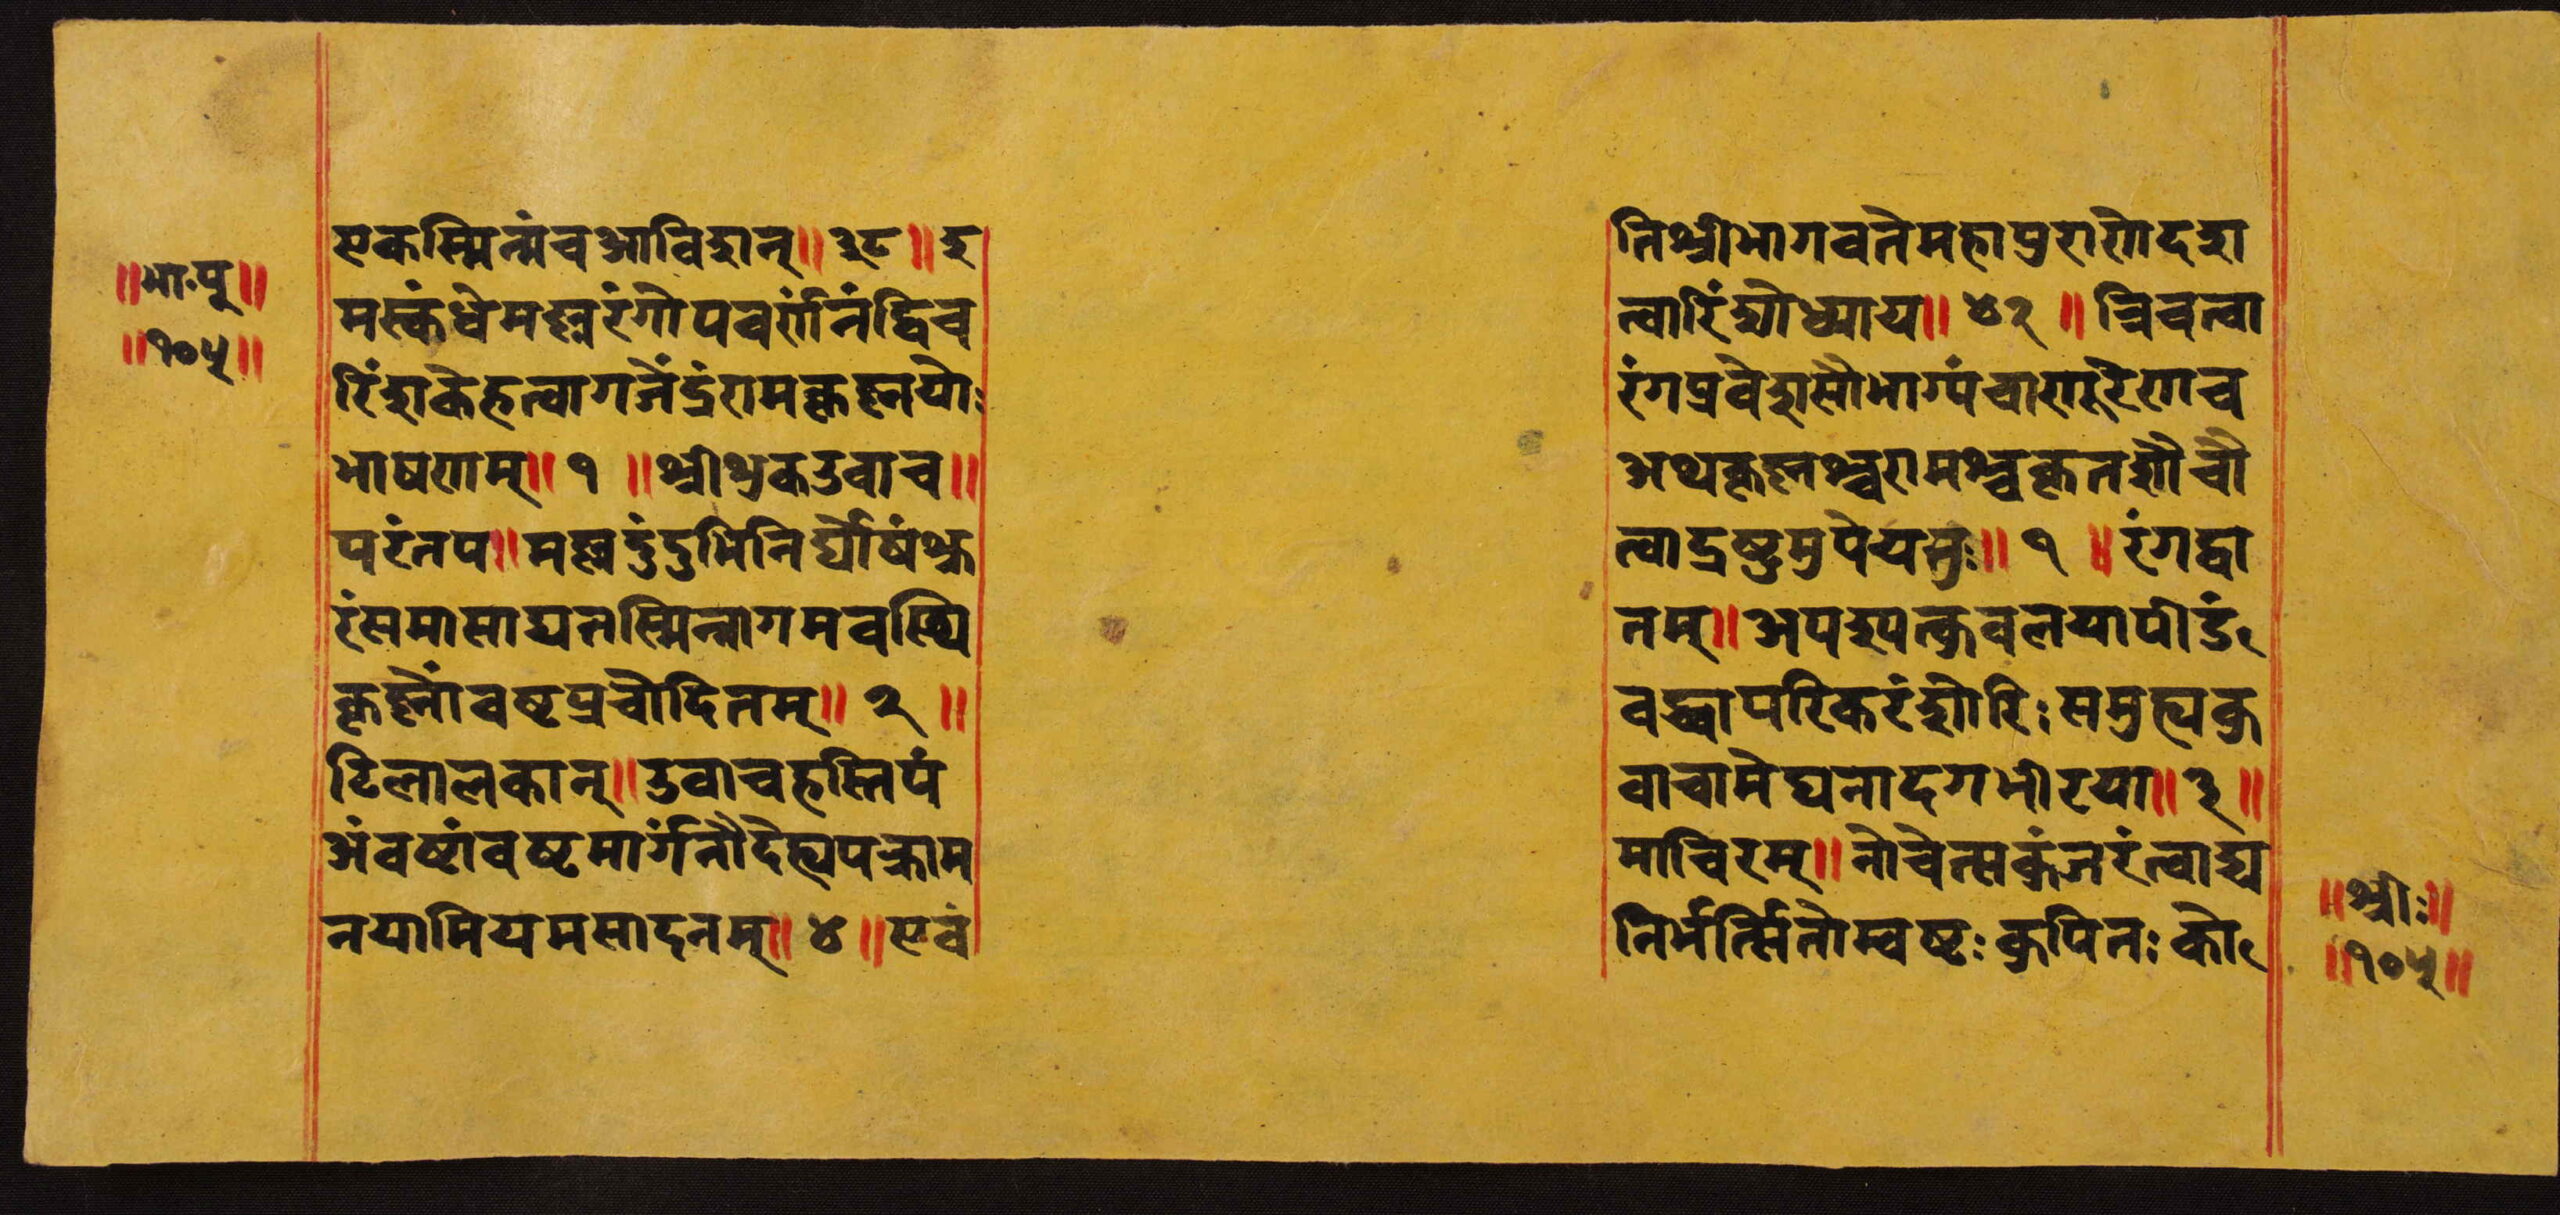 ॥भा॰पु॥
॥१०५॥
एकस्मिन्मंचआविशन्॥३८॥इ तिश्रीभागवतेमहापुराणेदश
मस्कंधेमल्लरंगोपवर्णनंद्विच त्वारिंशोध्याय॥४२॥त्रिचत्वा
रिंशकेहत्वागजेंद्रंरामकृष्णयोः रंगप्रवेशसौभाग्यंचाणूरेणच
भाषणम्॥१॥श्रीशुकउवाच॥ अथकृष्णश्चरामश्चकृतशौचौ
परंतप॥मल्लदुंदुभिनिर्घोषंश्रु त्वाद्रष्टुमुपेयतुः॥१॥रंगद्वा
रंसमासाद्यतस्मिन्नागमवस्थि तम्॥अपश्यत्कुवलयापीडं
कृष्णोंवष्टप्रचोदितम्॥२॥ वद्ध्वापरिकरंशौरिःसमुह्यकु
टिलालकान्॥उवाचहस्तिपं वाचामेघनादगभीरया॥३॥
अंवष्टांवष्टमार्गंनौदेह्यपक्राम माचिरम्॥नोचेत्सकुंजरंत्वाद्य
नयामियमसादनम्॥४॥एवं निर्भर्त्सितोम्वष्टःकुपितःको
॥श्रीः॥
॥१०५॥